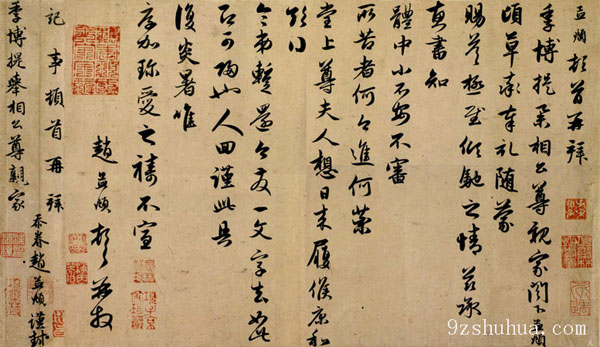 孟頫頓首再拜
季博提舉相公尊親家閤下孟頫
頃草率奉札随蒙
賜荅極慰傾馳之情茲承
惠書知
體中小不安不審
所苦者何今進何藥
堂上尊夫人想日來履候康和
令弟蹔還今友一文字去如此
可歸也人回謹此具
復炎暑唯
厚加珍愛之禱不宣
趙孟頫頓首
記事頓首再拜
季博提舉相公尊親家
忝眷趙孟頫謹封
9zshuhua.com